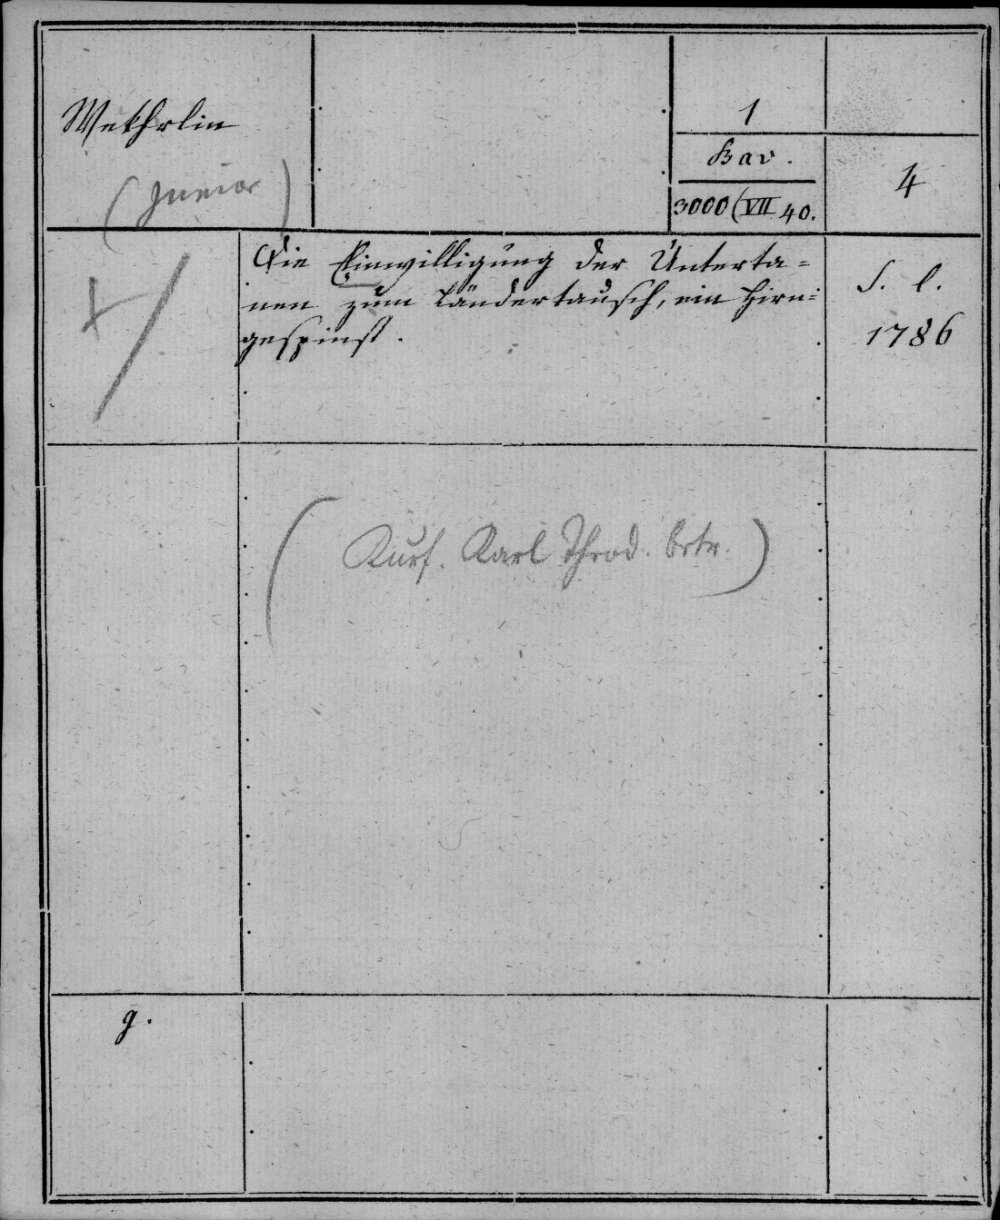 Wekhrlin
(Junior)
1
Bav.
3000 (VII 40.
4
Die Einwilligung der Unterta-
nen zum Ländertausch, ein Hirn-
gespinst.
S. l.
1786
(Kurf. Karl Theod. betr.)
g.